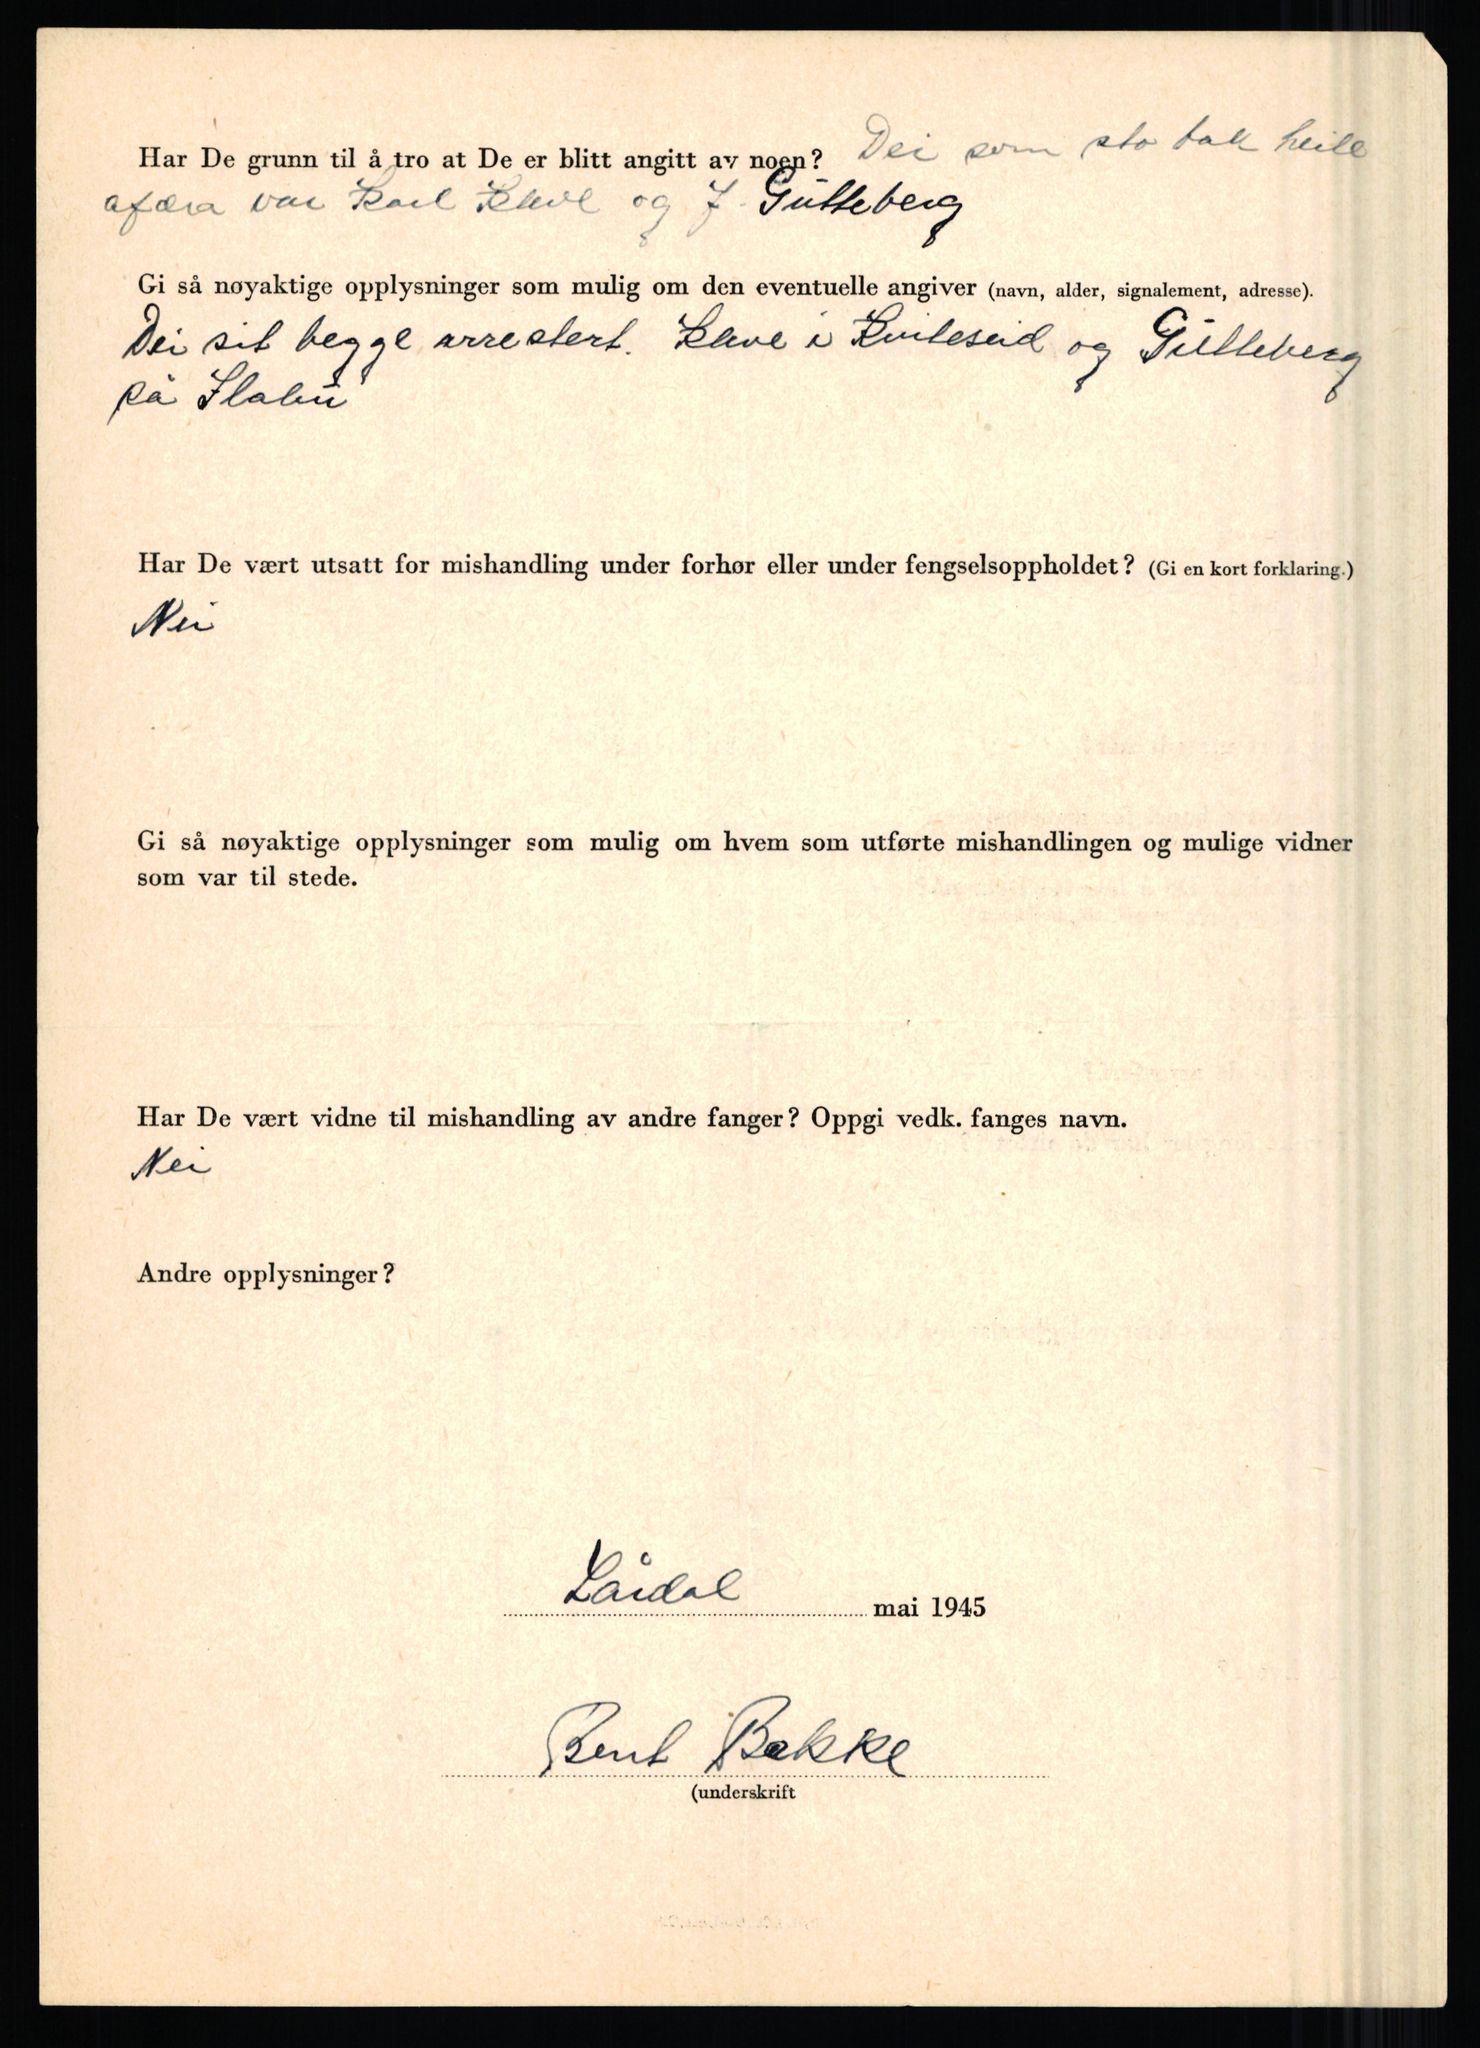 Har De grunn til å tro at De er blitt angitt av noen? Dei som sto bak heile
afæra var Karl Kleve og J. Gutteberg
Gi så nøyaktige opplysninger som mulig om den eventuelle angiver (navn, alder, signalement, adresse).
Dei sit begge arrestert. Kleve i Kviteseid og Gutteberg
på Ilabu
Har De vært utsatt for mishandling under forhør eller under fengselsoppholdet? (Gi en kort forklaring.)
Nei
Gi så nøyaktige opplysninger som mulig om hvem som utførte mishandlingen og mulige vidner
som var til stede.
Har De vært vidne til mishandling av andre fanger? Oppgi vedk. fanges navn.
Nei
Andre opplysninger?
Lårdal mai 1945
Bent Bakke
(underskrift